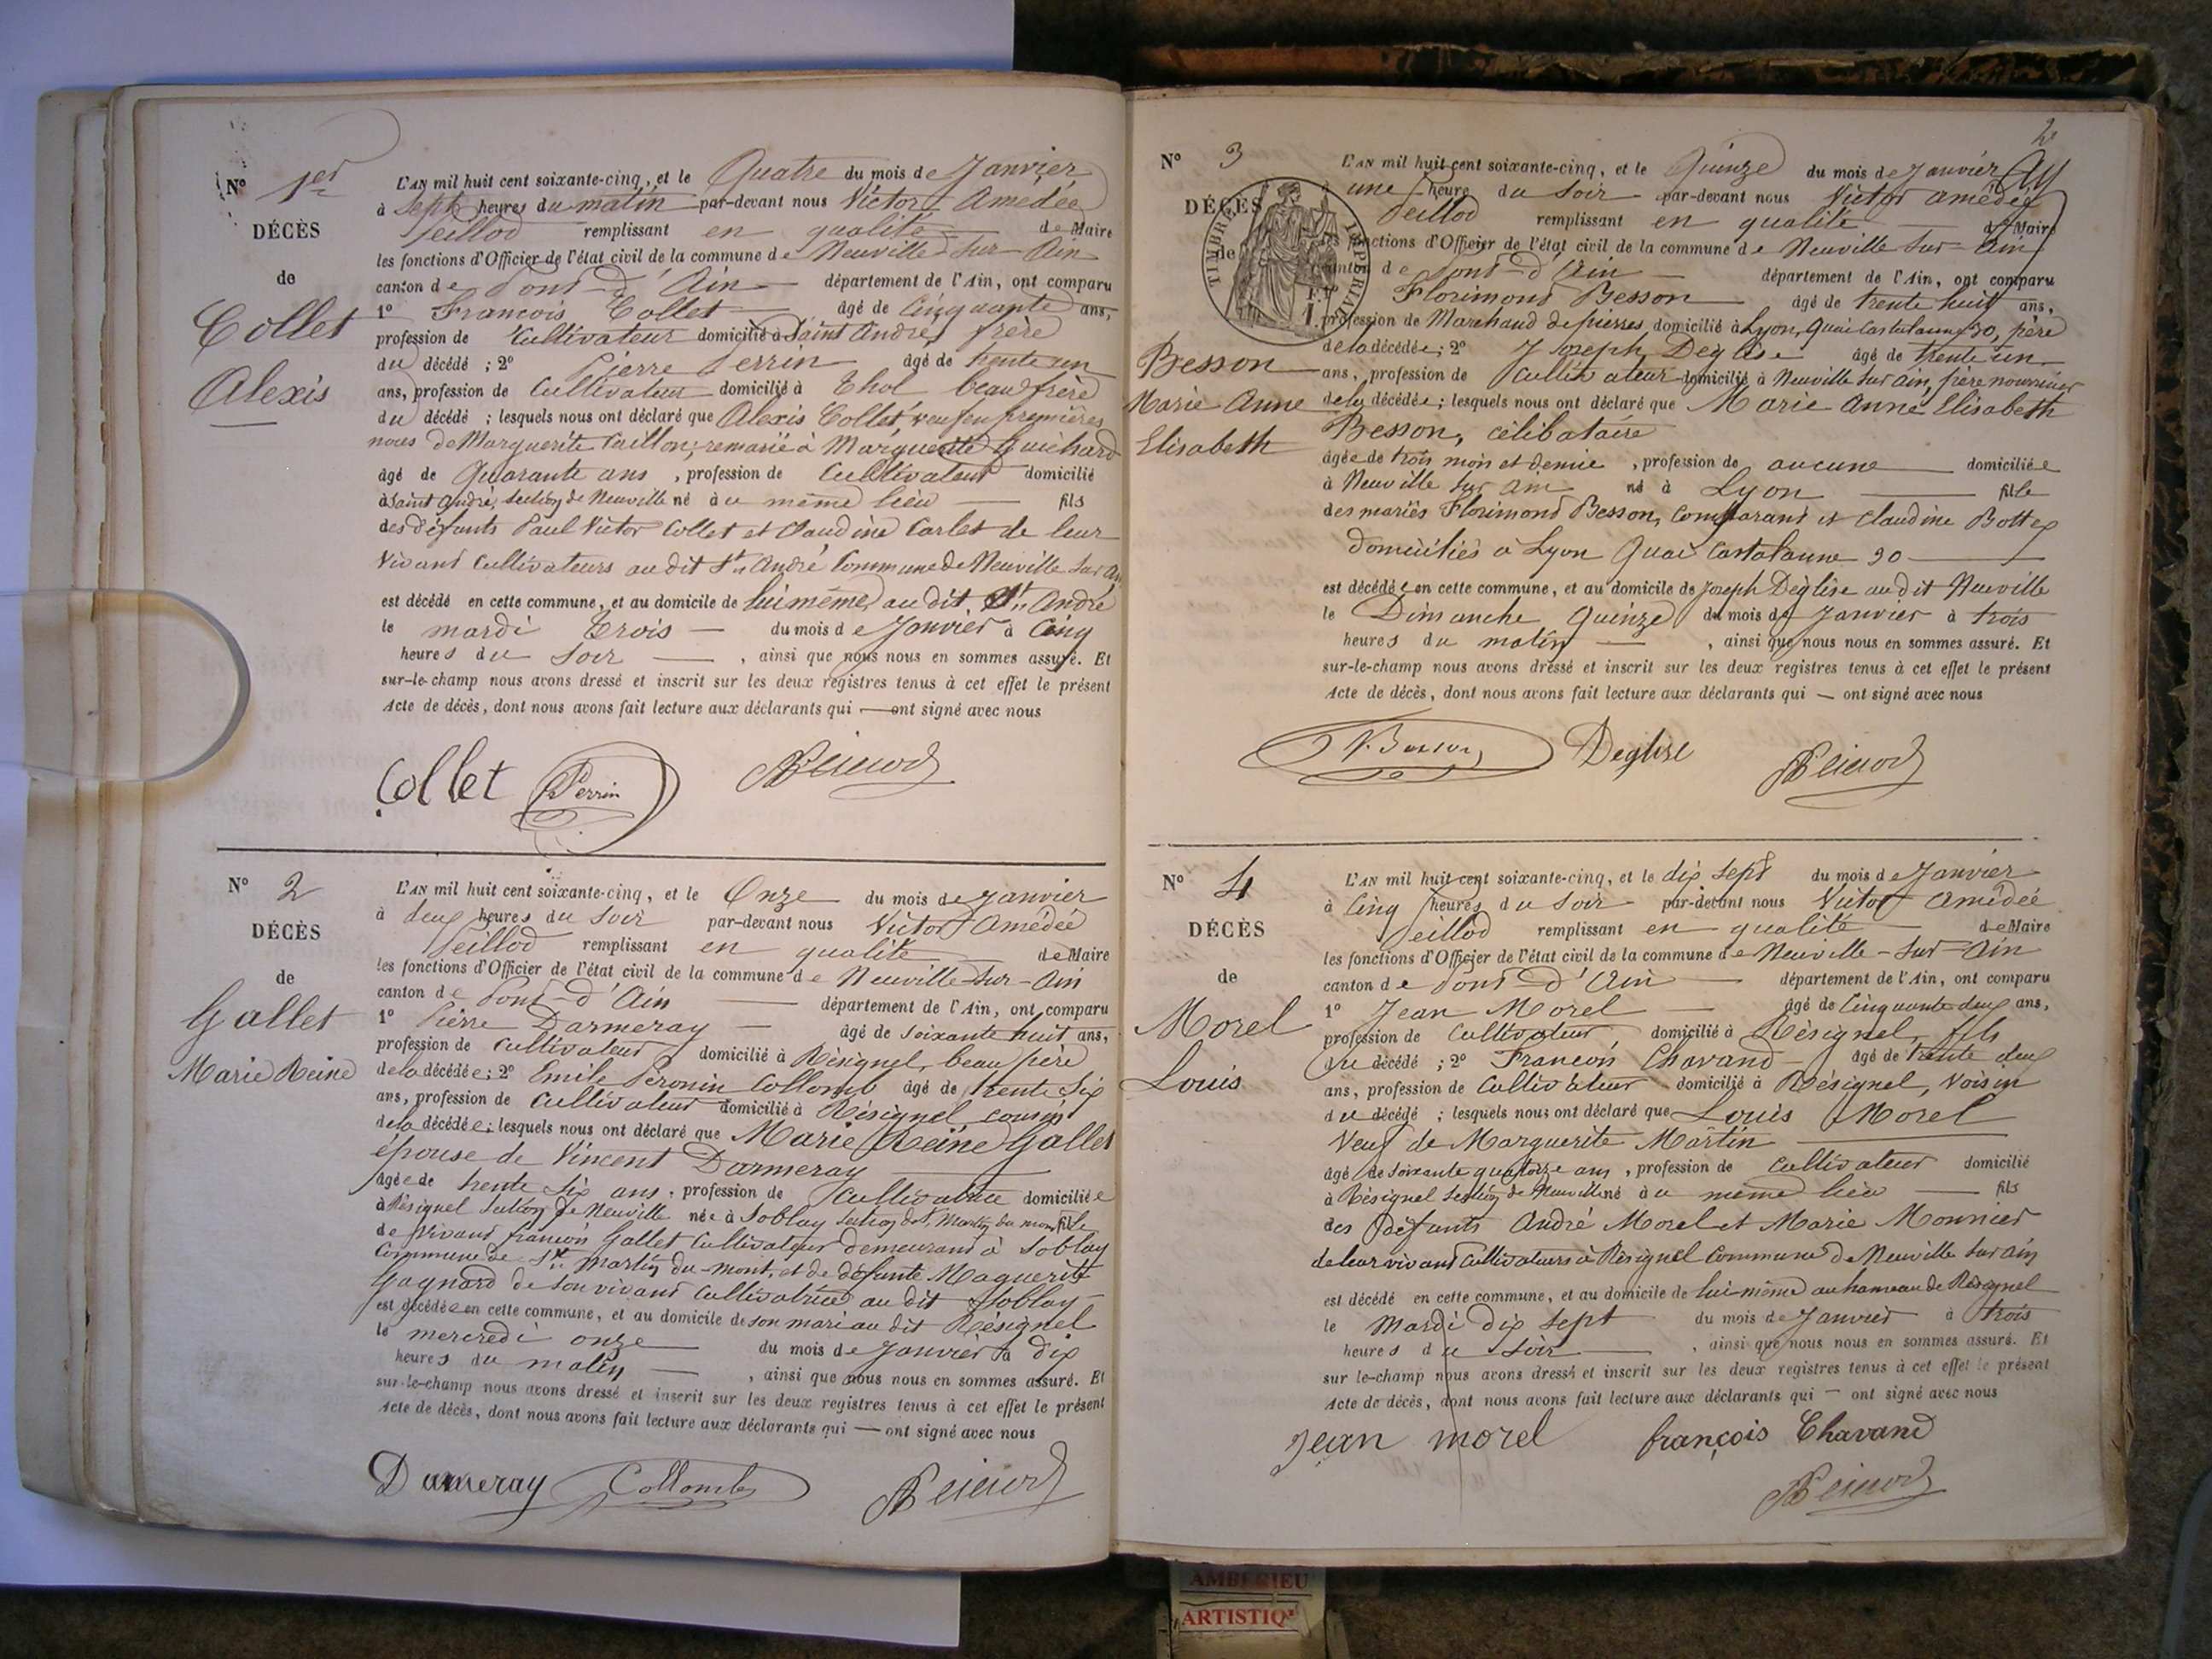 N° 1er
DÉCÈS
de
Collet
Alexis
L'AN mil huit cent soixante-cinq, et le Quatre du mois de Janvier
à Sept heures du matin par-devant nous Victor Amédée
Peillod remplissant en qualité de Maire
les fonctions d'Officier de l'état civil de la commune de Neuville sur Ain
canton de Pont-d'Ain département de l'Ain, ont comparu
1° Francois Collet âgé de Cinquante ans,
profession de Cultivateur domicilié à Saint André, frère
du décédé ; 2° Pierre Perrin âgé de trente un
ans, profession de Cultivateur domicilié à Thol beau frère
du décédé ; lesquels nous ont déclaré que Alexis Collet, veuf en premières
noces de Marguerite Caillon, remarié à Marguerite Guichard
âgé de Quarante ans, profession de Cultivateur domicilié
à Saint André, section de Neuville né à u même lieu fils
des défunts Paul Victor Collet et Claudine Carlet de leur
vivant Cultivateurs au dit St. André Commune de Neuville sur Ain
est décédé en cette commune, et au domicile de lui même au dit St. André
le mardi trois du mois de Janvier à Cinq
heures du soir , ainsi que nous nous en sommes assuré. Et
sur-le-champ nous avons dressé et inscrit sur les deux registres tenus à cet effet le présent
Acte de décès, dont nous avons fait lecture aux déclarants qui — ont signé avec nous
Collet Perrin Peillod
N° 2
DÉCÈS
de
Gallet
Marie Reine
L'AN mil huit cent soixante-cinq, et le Onze du mois de Janvier
à deux heures du soir par-devant nous Victor Amédée
Peillod remplissant en qualité de Maire
les fonctions d'Officier de l'état civil de la commune de Neuville-sur-Ain
canton de Pont-d'Ain département de l'Ain, ont comparu
1° Pierre Darmeray âgé de soixante huit ans,
profession de cultivateur domicilié à Résignel, beau père
de la décédée; 2° Emile Peronin Collomb âgé de trente six
ans, profession de cultivateur domicilié à Résignel cousin
de la décédée; lesquels nous ont déclaré que Marie Reine Gallet
épouse de Vincent Darmeray
âgée de trente six ans, profession de Cultivatrice domiciliée
à Résignel Section de Neuville née à Soblay section de St. Martin du mont fille
de vivant françois Gallet Cultivateur demeurant à Soblay
Commune de St. Martin du-mont, et de défunte Maguerite
Gagnard de son vivant Cultivatrice au dit Soblay
est décédée en cette commune, et au domicile de son mari au dit Résignel
le mercredi onze du mois de Janvier à dix
heures du matin , ainsi que nous nous en sommes assuré. Et
sur-le-champ nous avons dressé et inscrit sur les deux registres tenus à cet effet le présent
Acte de décès, dont nous avons fait lecture aux déclarants qui — ont signé avec nous
Darmeray Collomb Peillod
2
N° 3
DÉCÈS
de
TIMBRE IMPERIAL
Besson
Marie Anne
Elisabeth
L'AN mil huit cent soixante-cinq, et le Quinze du mois de Janvier
à une heure du soir par-devant nous Victor amédée
Peillod remplissant en qualité de Maire
les fonctions d'Officier de l'état civil de la commune de Neuville sur Ain
canton de Pont-d'Ain département de l'Ain, ont comparu
1° Florimond Besson âgé de trente huit ans,
profession de Marchand de pierres, domicilié à Lyon, Quai Castelanne 30, père
de la décédée; 2° Joseph Déglise âgé de trente un
ans, profession de Cultivateur domicilié à Neuville sur ain, père nourricier
de la décédée; lesquels nous ont déclaré que Marie Anne Elisabeth
Besson, célibataire
âgée de trois mois et demie, profession de aucune domiciliée
à Neuville sur ain né à Lyon fille
des mariés Florimond Besson, Comparant et Claudine Bottex
domiciliés à Lyon Quai Castelanne 30
est décédée en cette commune, et au domicile de Joseph Déglise au dit Neuville
le Dimanche Quinze du mois de Janvier à trois
heures du matin , ainsi que nous nous en sommes assuré. Et
sur-le-champ nous avons dressé et inscrit sur les deux registres tenus à cet effet le présent
Acte de décès, dont nous avons fait lecture aux déclarants qui — ont signé avec nous
Besson Deglise Peillod
N° 4
DÉCÈS
de
Morel
Louis
L'AN mil huit cent soixante-cinq, et le dix sept du mois de Janvier
à Cinq heures du soir par-devant nous Victor Amédée
Peillod remplissant en qualité de Maire
les fonctions d'Officier de l'état civil de la commune de Neuville-sur-Ain
canton de Pont-d'Ain département de l'Ain, ont comparu
1° Jean Morel âgé de Cinquante deux ans,
profession de Cultivateur domicilié à Résignel, fils
du décédé ; 2° Francois Chavand âgé de trente deux
ans, profession de Cultivateur domicilié à Résignel, voisin
du décédé ; lesquels nous ont déclaré que Louis Morel
Veuf de Marguerite Martin
âgé de soixante quatorze ans, profession de cultivateur domicilié
à Résignel section de Neuville né à u même lieu fils
des défunts André Morel et Marie Monnier
de leur vivant Cultivateurs à Résignel Commune de Neuville sur ain
est décédé en cette commune, et au domicile de lui-même au hameau de Résignel
le Mardi dix sept du mois de Janvier à trois
heures du soir , ainsi que nous nous en sommes assuré. Et
sur le-champ nous avons dressé et inscrit sur les deux registres tenus à cet effet le présent
Acte de décès, dont nous avons fait lecture aux déclarants qui — ont signé avec nous
Jean morel françois Chavand
Peillod
AMBERIEU
ARTISTIQ